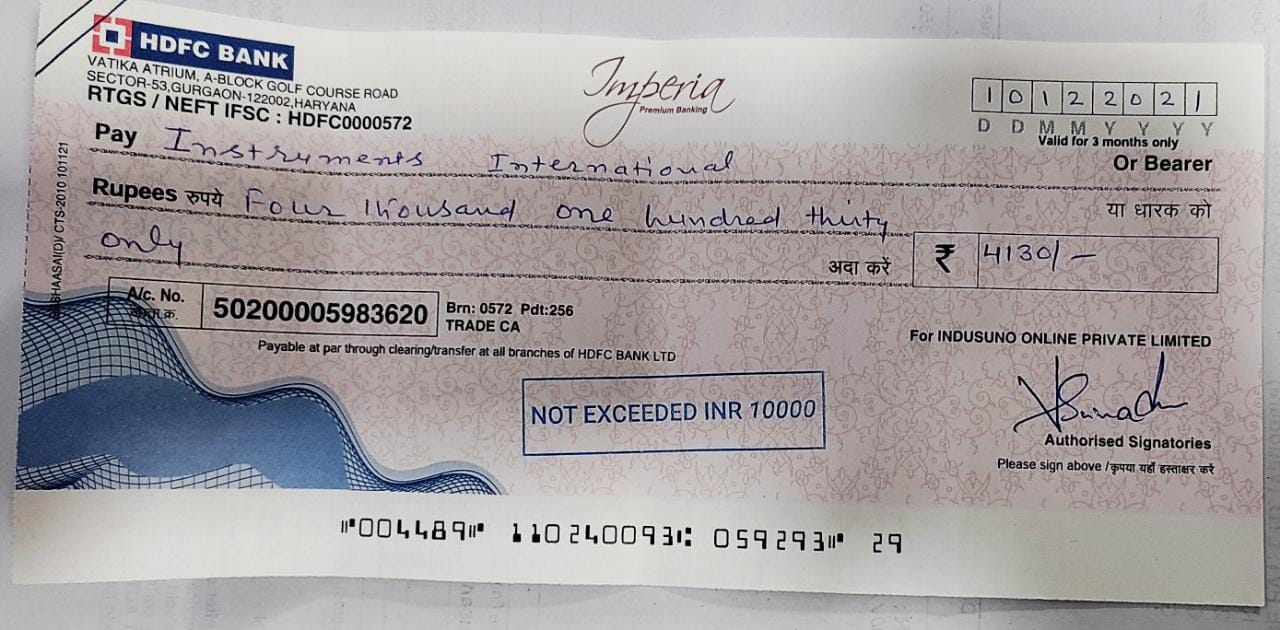 HDFC BANK
VATIKA ATRIUM, A-BLOCK GOLF COURSE ROAD
SECTOR-53,GURGAON-122002,HARYANA
RTGS / NEFT IFSC : HDFC0000572
Imperia
Premium Banking
1 0 1 2 2 0 2 1
D D M M Y Y Y Y
Valid for 3 months only
Pay Instruments International Or Bearer
Rupees रुपये Four thousand one hundred thirty या धारक को
only अदा करें ₹ 4130/-
A/c. No. 50200005983620 Brn: 0572 Pdt:256
TRADE CA
Payable at par through clearing/transfer at all branches of HDFC BANK LTD
For INDUSUNO ONLINE PRIVATE LIMITED
NOT EXCEEDED INR 10000
Authorised Signatories
Please sign above /कृपया यहाँ हस्ताक्षर करें
⑈004489⑈ 110240093⑆ 059293⑈ 29
CTS-2010 101121